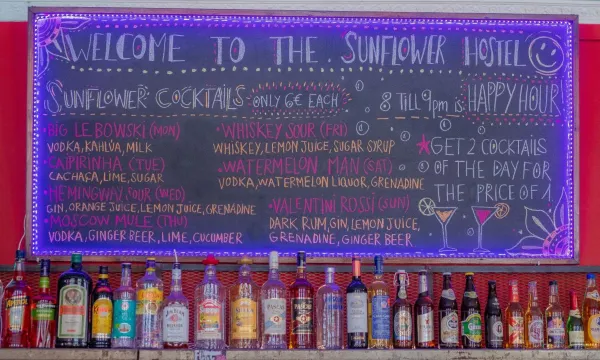 WELCOME TO THE SUNFLOWER HOSTEL
SUNFLOWER COCKTAILS ONLY 6€ EACH
• BIG LEBOWSKI (MON)
VODKA, KAHLUA, MILK
• CAIPIRINHA (TUE)
CACHAÇA, LIME, SUGAR
• HEMINGWAY SOUR (WED)
GIN, ORANGE JUICE, LEMON JUICE, GRENADINE
• MOSCOW MULE (THU)
VODKA, GINGER BEER, LIME, CUCUMBER
• WHISKEY SOUR (FRI)
WHISKEY, LEMON JUICE, SUGAR SYRUP
• WATERMELON MAN (SAT)
VODKA, WATERMELON LIQUOR, GRENADINE
• VALENTINI ROSSI (SUN)
DARK RUM, GIN, LEMON JUICE,
GRENADINE, GINGER BEER
8 TILL 9PM IS HAPPY HOUR
GET 2 COCKTAILS
OF THE DAY FOR
THE PRICE OF 1